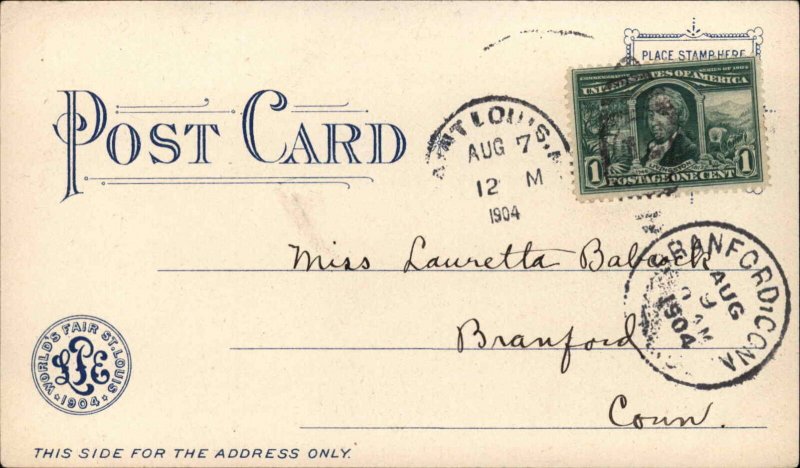 PLACE STAMP HERE
COMMEMORATIVE SERIES OF 1904
UNITED STATES OF AMERICA
1 POSTAGE ONE CENT 1
POST CARD
SAINT LOUIS, M
AUG 7
12 M
1904
Miss Lauretta Babcock
Branford
Conn.
BRANFORD, CONN
AUG
9
AM
1904
WORLD'S FAIR ST. LOUIS
LPE
1904
THIS SIDE FOR THE ADDRESS ONLY.